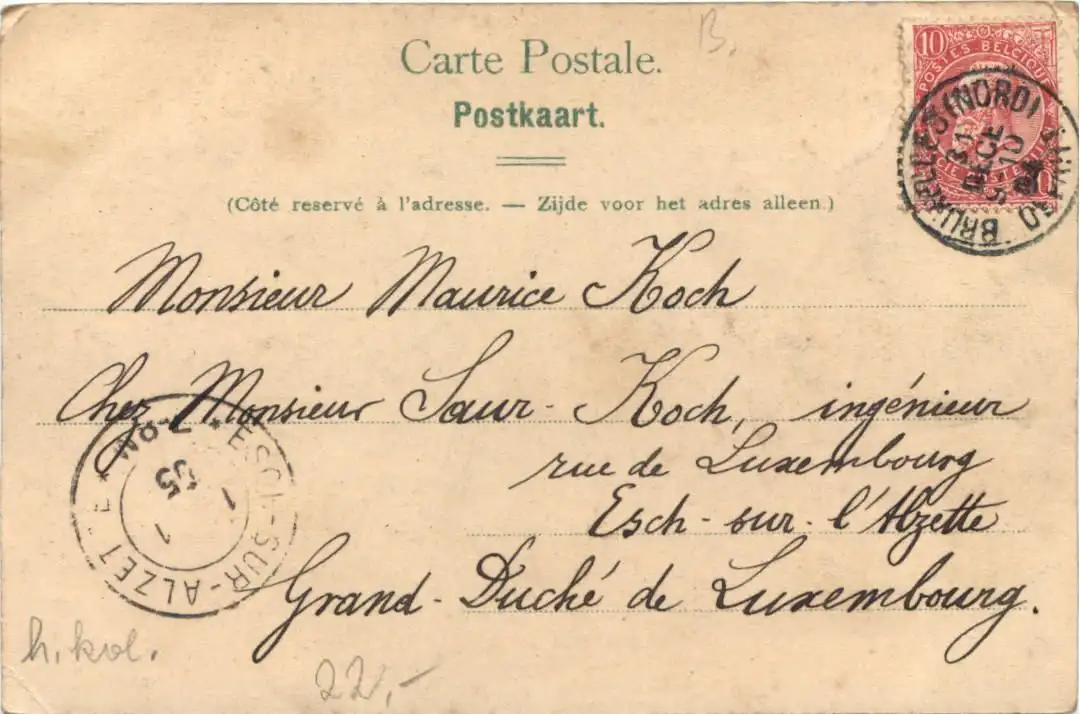 B.
Carte Postale.
Postkaart.
(Côté reservé à l'adresse. — Zijde voor het adres alleen.)
10
POSTES BELGIQUE
BRUXELLES (NORD)
31
DECE
04
Monsieur Maurice Koch
Chez Monsieur Saur-Koch, ingénieur
rue de Luxembourg
Esch-sur-l'Alzette
Grand-Duché de Luxembourg.
ESCH-SUR-ALZETTE
1
1
05
h. kol.
22,-